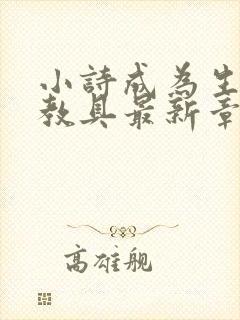 小詩成為生
教具最新章
高雄舰